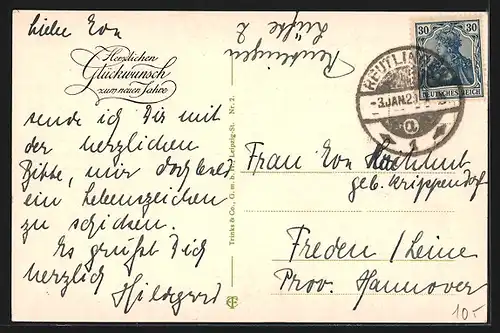 Liebe Eva
Herzlichen
Glückwunsch
zum neuen Jahre
sende ich Dir mit
der herzlichen
Bitte, mir doch bald
ein Lebenszeichen
zu schicken.
Es grüßt Dich
herzlich
Hildegard
Reutlingen
2
Trinks & Co., G. m. b. H., Leipzig-St. Nr. 2.
30 30
DEUTSCHES REICH
REUTLINGEN
-3.JAN.2
a
1
Frau Eva
geb. Krippendorf
Freden / Leine
Prov. Hannover
10.-